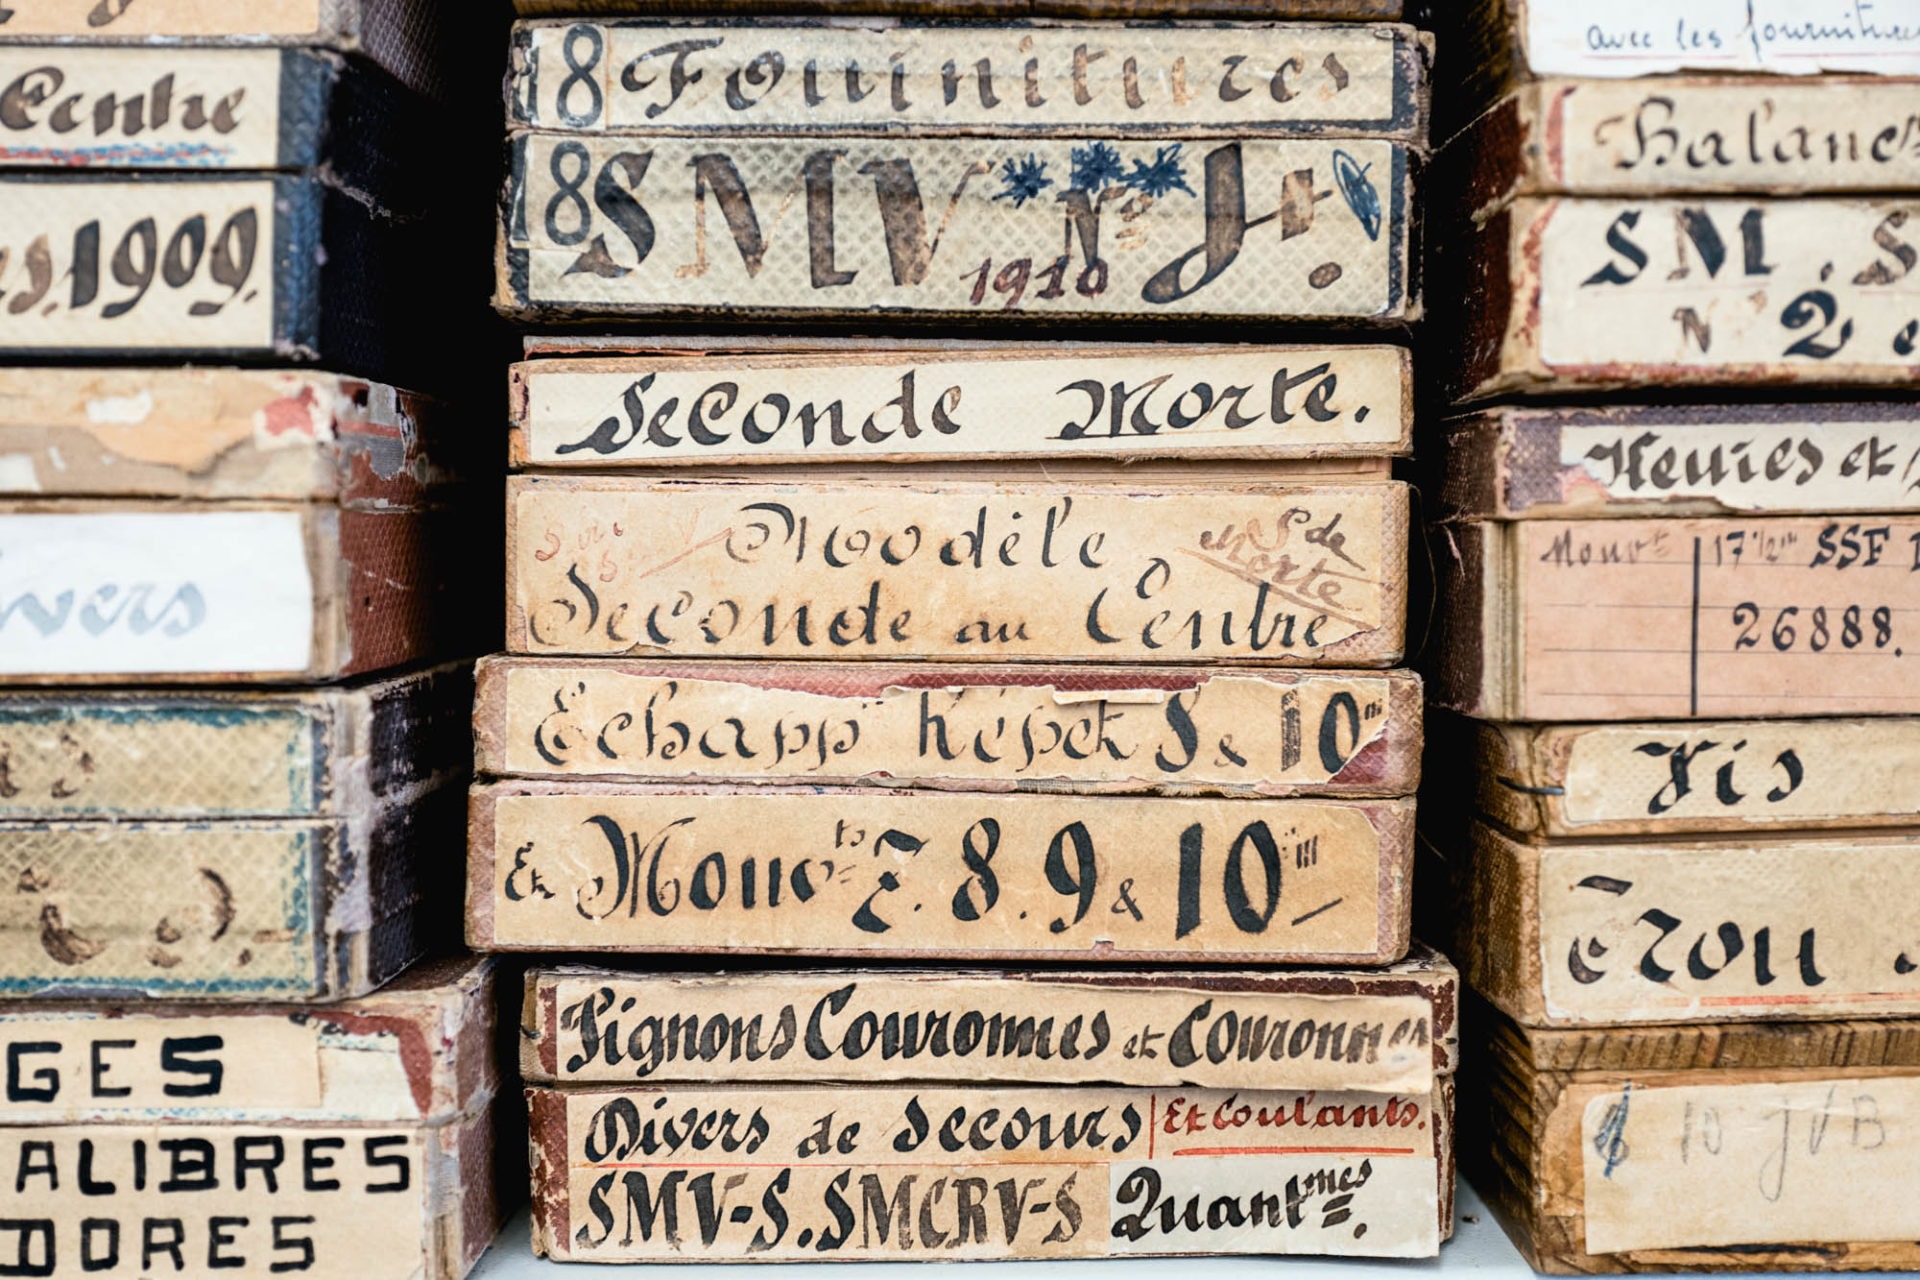 Centre
1909.
vers
GES
ALIBRES
DORES
18 Fournitures
18 SMV Nos Jt.
1910
Seconde Morte.
Modèle
Seconde au Centre
S de
Morte
Echappt Répét S & 10'''
Et Mouvts 7. 8. 9 & 10'''
Pignons Couronnes et Couronnes
Divers de Secours Et Coulants.
SMV-S. SMCRV-S Quantmes.
avec les fournitures
Balanc
SM. S
No 2 e
Heures et
Mouvt 17 1/2''' SSF
26888.
Vis
Trou
10 JVB